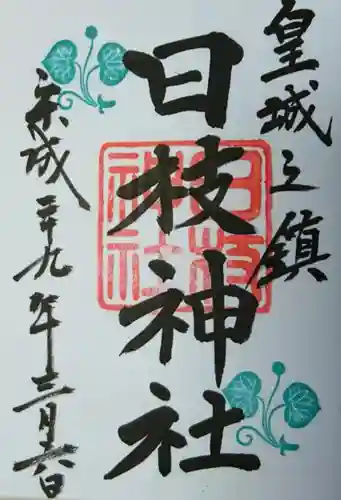 皇城之鎮
日枝神社
平成二十九年三月六日